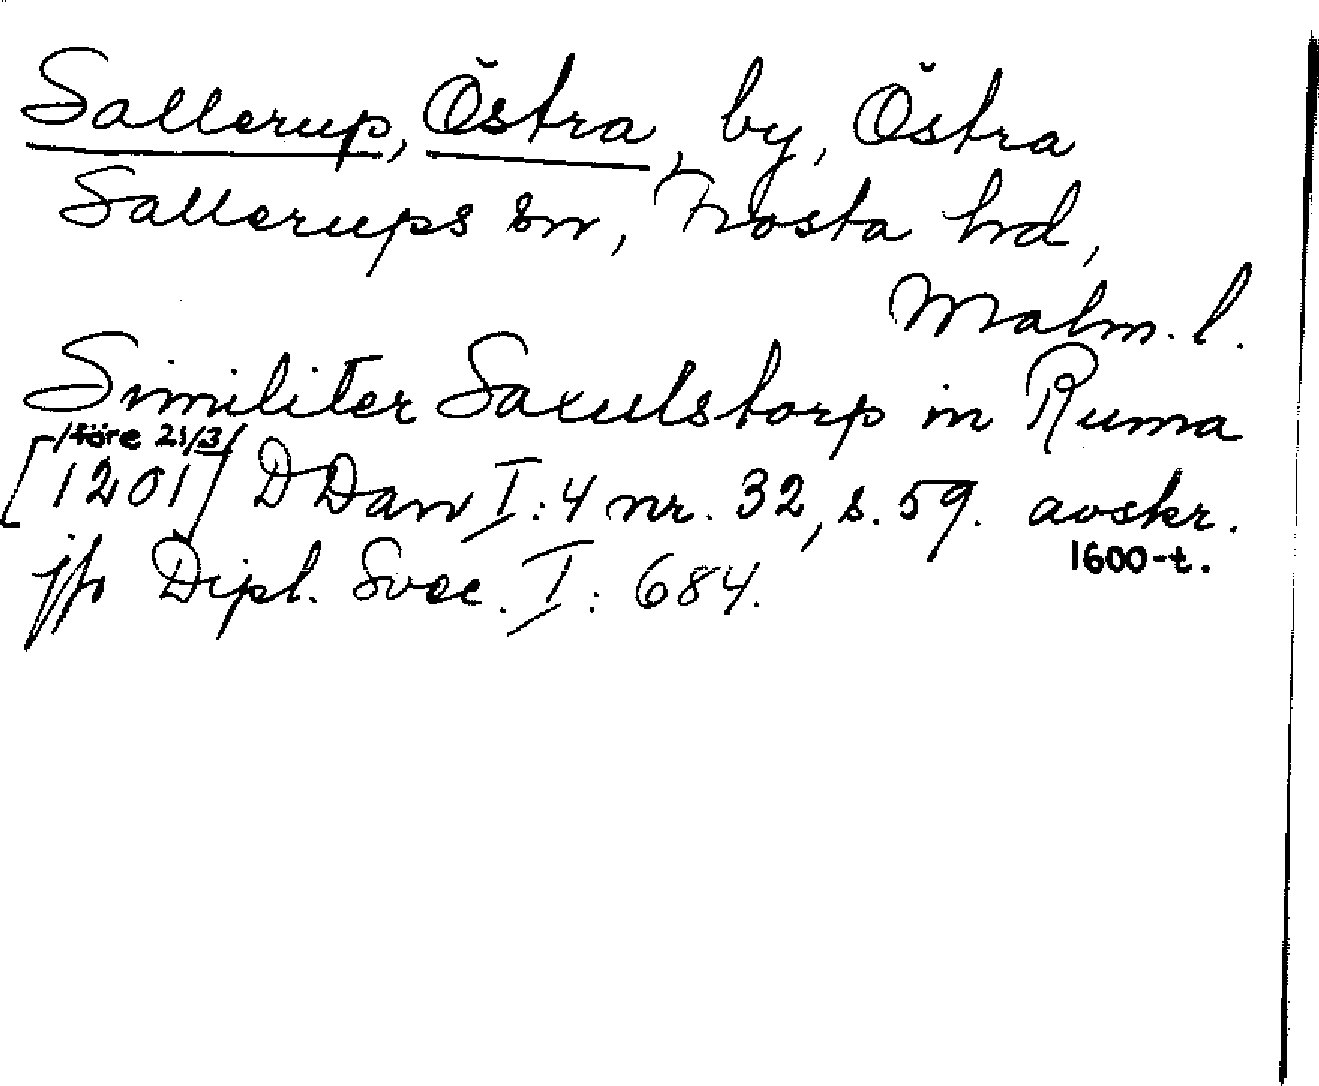 Sallerup, Östra, by, Östra
Sallerups sn, Frosta hd,
Malm. l.
Similiter Saxulstorp in Ruma
/före 21/3/
[1201] DDan I:4 nr. 32, s. 59. avskr.
1600-t.
jfr Dipl. Svec. I: 684.